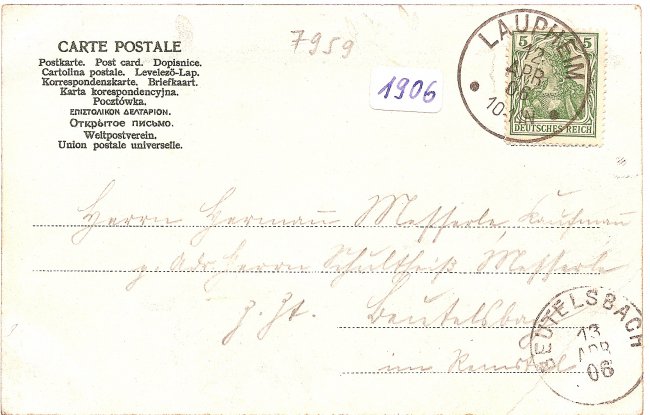 CARTE POSTALE
Postkarte. Post card. Dopisnice.
Cartolina postale. Levelező-Lap.
Korrespondenzkarte. Briefkaart.
Karta korespondencyjna.
Pocztówka.
ΕΠΙΣΤΟΛΙΚΟΝ ΔΕΛΤΑΡΙΟΝ.
Открытое письмо.
Weltpostverein.
Union postale universelle.
7959
1906
5 5
DEUTSCHES REICH
LAUPHEIM
12
APR
06
10-11 N
Herrn Hermann Messerle, Kaufmann
p. Adr. Herrn Schultheiß Messerle
z. Zt. Beutelsbach
im Remstal
BEUTELSBACH
13
APR
06